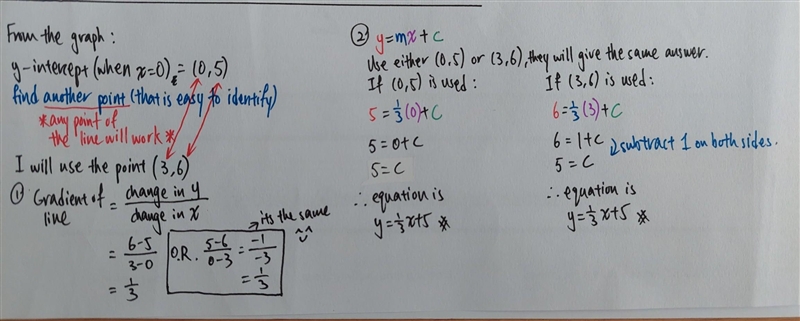 From the graph :
y-intercept (when x=0) = (0, 5)
find another point (that is easy to identify)
*any point of
the line will work*
I will use the point (3, 6)
① Gradient of line = change in y / change in x
= 6-5 / 3-0
= 1/3
O.R. 5-6 / 0-3 = -1 / -3
= 1/3
→ its the same
② y = mx + c
Use either (0, 5) or (3, 6), they will give the same answer.
If (0, 5) is used :
5 = 1/3 (0) + c
5 = 0 + c
5 = c
∴ equation is
y = 1/3 x + 5 *
If (3, 6) is used :
6 = 1/3 (3) + c
6 = 1 + c
5 = c
subtract 1 on both sides.
∴ equation is
y = 1/3 x + 5 *